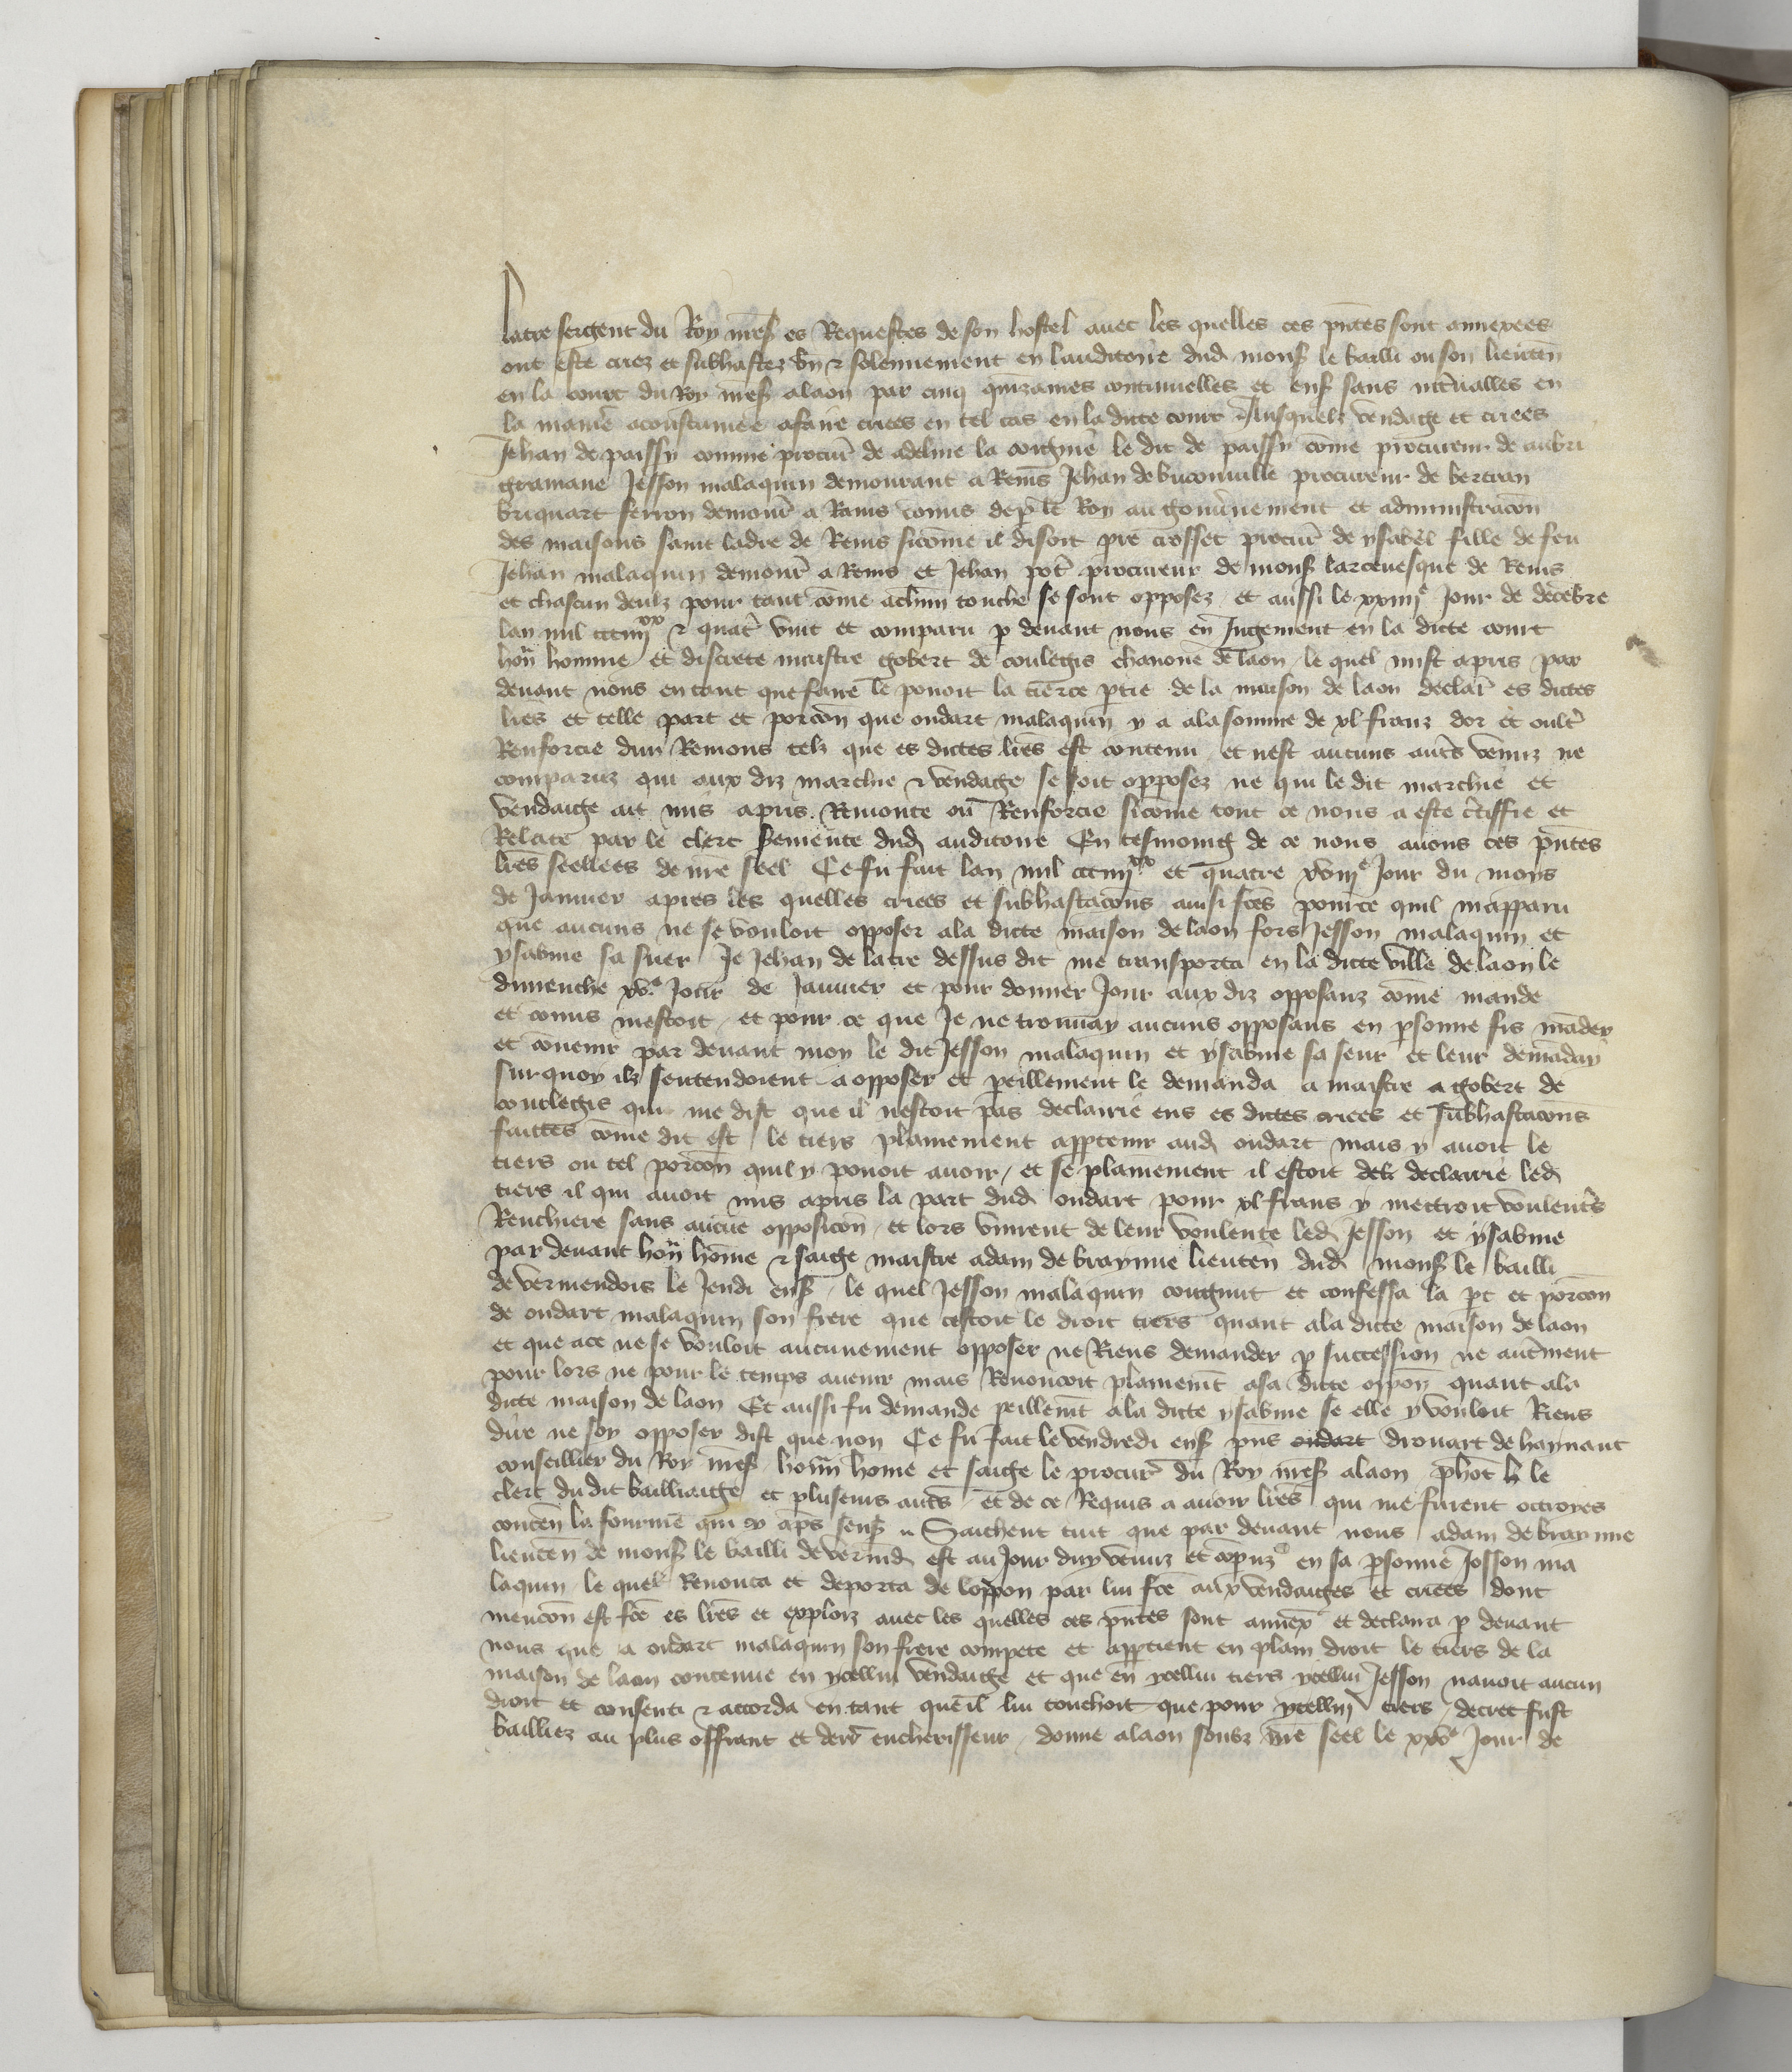 latre sergent du Roy nr̃eſ es Requestes de son hostel avec les quelles ces pñtes sont annexees
ont este criez et subhastez bñ & solennement en lauditoire dud monſ le bailli ou son lieuteñ
en la court du Roy nr̃eſ a laon par cinq quinzaines continuelles et enſ sans intervalles en
la manie acoustumee a faire criees en tel cas en la dicte court Ausquelz vendage et criees
Jehan de paissy comme procur̃ de adeline la le dit de paissy cõme procureur de aubri
gramaue Jesson malaquin demourant a Reins Jehan de buconville procureur de bertran
briquart ferron demour̃ a Rains cõmis de p le Roy au gouvnement et administracõn
des maisons saint ladre de Reins sicõme il disoit pre crosset procur̃ de ysabel fille de feu
Jehan malaquin demour̃ a Reins et Jehan pot procureur de monſ larcevesque de Reins
et chascun deulz pour tant cõme a chũn touche se sont opposez et aussi le xxiiijᵉ Jour de decẽbre
lan mil ccciiijˣˣ & quatr̃ vint et comparu p devant nous en Jugement en la dicte court
hoñ homme et discrete maistre gobert de coulegis chanoñe de laon le quel mist a pris par
devant nous en tant que faire le povoit la tierce ptie de la maison de laon declair̃ es dictes
lr̃es et telle part et porcõn que oudart malaquin y a a la somme de xl franz dor et oultr̃
Renforcie dun Remons telz que es dictes lr̃es est contenu et nest aucuns autr̃s venuz ne
comparuz qui aux diz marchie & vendage se soit opposez ne qui le dit marchie et
vendaige ait mis a pris Remonte ou Renforcie sicõme tout ce nous a este c̃tiffie et
Relate par le clerc sermente dud auditoire En tesmoing de ce nous avons ces pñtes
lr̃es seellees de nr̃e seel Ce fu fait lan mil ccciiijˣˣ et quatre xviijᵉ Jour du moys
de Janvier apres les quelles criees et subhastacõns ainsi fc̃es pource quil mapparu
que aucuns ne se vouloit opposer a la dicte maison de laon fors Jesson malaquin et
ysabine sa suer Je Jehan de latre dessus dit me transporta en la dicte ville de laon le
dimenche xvᵉ Jour de Janvier et pour donner Jour aux diz opposanz cõme mande
et cõmis mestoit et pour ce que Je ne trouvay aucuns opposans en psonne fis mãder
et cõvenir par devant moy le dit Jesson malaquin et ysabine sa seur et leur demãday
sur quoy ilz sentendoient a opposer et peillement le demanda a maistre gobert de
couclegis qui me dist que il nestoit pas declairie ens es dictes criees et subhastacõns
faittes cõme dit est le tiers plainement apptenir aud oudart mais y avoit le
tiers ou tel porcõn quil y povoit avoir et se plainement il estoit declairie led
tiers il qui avoit mis a pris la part dud oudart pour xl frans y mettroit voulent̃s
Renchiere sans aucũe opposicõn et lors vinrent de leur voulente led Jesson et ysabine
par devant hoñ hõme & saige maistre adam de braynne lieuteñ dud monſ le bailli
de vermendois le Jeudi enſ le quel Jesson malaquin congnut et confessa la pt et porcõn
de oudart malaquin son frere que cestoit le droit tiers quant a la dicte maison de laon
et que a ce ne se vouloit aucunement opposer ne Riens demander p succession ne autr̃ment
pour lors ne pour le temps avenir mais Renoncoit plainemt̃ a sa dicte oppon quant a la
dicte maison de laon Et aussi fu demande peillemt̃ a la dicte ysabine se elle y vouloit Riens
dire ne soy opposer dist que non Ce fu fait le vendredi enſ pñs oudart drouart de haynaut
conseillier du Roy nr̃eſ honñ home et saige le procur̃ du Roy nr̃eſ a laon le
clerc du dit bailliaige et plusieurs autr̃s et de ce Requis a avoir lr̃es qui me furent octroyes
conteñ la fourme qui cy aps senſ Saichent tuit que par devant nous adam de braynne
lieuteñ de monſ le bailli de vermd est au Jour duy venuz et cõpuz en sa psonne Josson ma
laquin le quel Renonca et deporta de loppon par lui fc̃e aux vendaiges et criees dont
mencõn est fc̃e es lr̃es et exploiz avec les quelles ces pñtes sont annex̃ et declaira p devant
nous que a oudart malaquin son frere compete et apptient en plain droit le tiers de la
maison de laon contenue en ycellui vendaige et que en ycellui tiers ycellui Jesson navoit aucun
droit et consenti & accorda en tant que il lui touchoit que pour ycellui tiers decret fust
bailliez au plus offrant et derr̃ encherisseur donne a laon soubz nr̃e seel le xxvᵉ Jour de